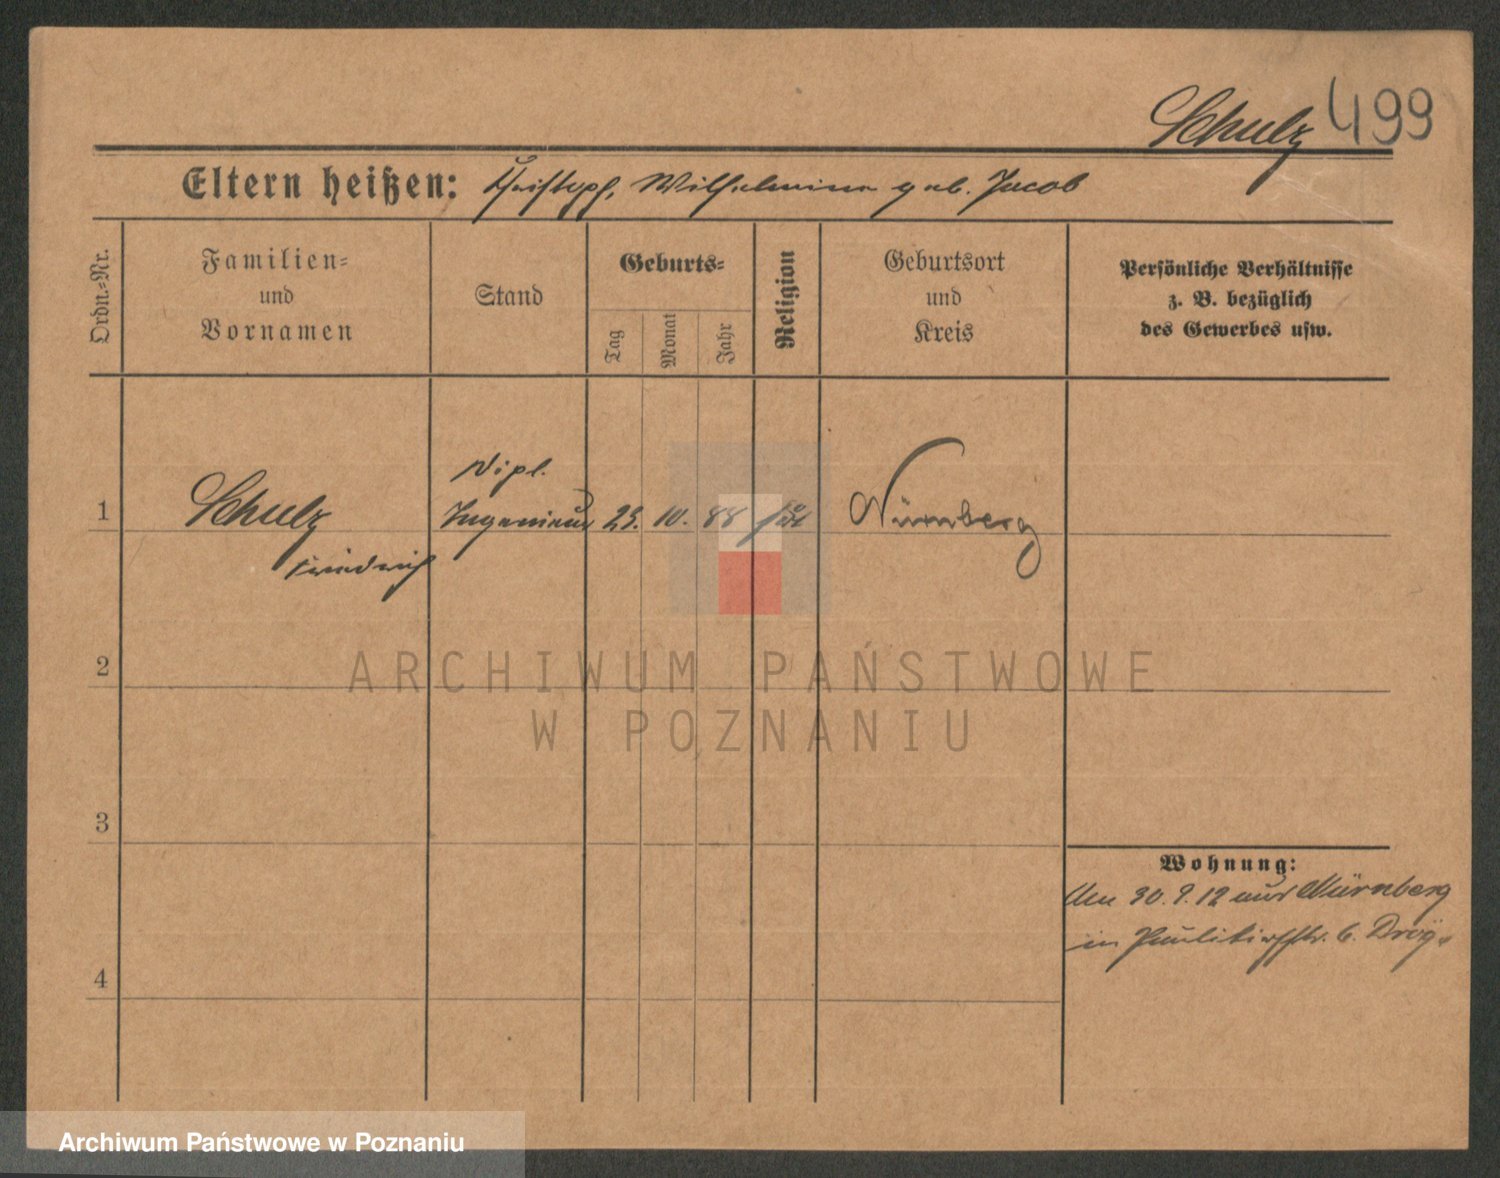 Schulz 499
Eltern heißen: Christoph, Wilhelmine geb. Jacob
Ordn.=Nr.
Familien=
und
Vornamen
Stand
Geburts=
Tag
Monat
Jahr
Religion
Geburtsort
und
Kreis
Persönliche Verhältnisse
z. B. bezüglich
des Gewerbes usw.
1
Schulz
Friedrich
Dipl.
Ingenieur
23. 10. 88
Nürnberg
2
ARCHIWUM PAŃSTWOWE
W POZNANIU
3
Wohnung:
30. 9. 12 aus Nürnberg
in Paulikirchstr. 6.
4
Archiwum Państwowe w Poznaniu